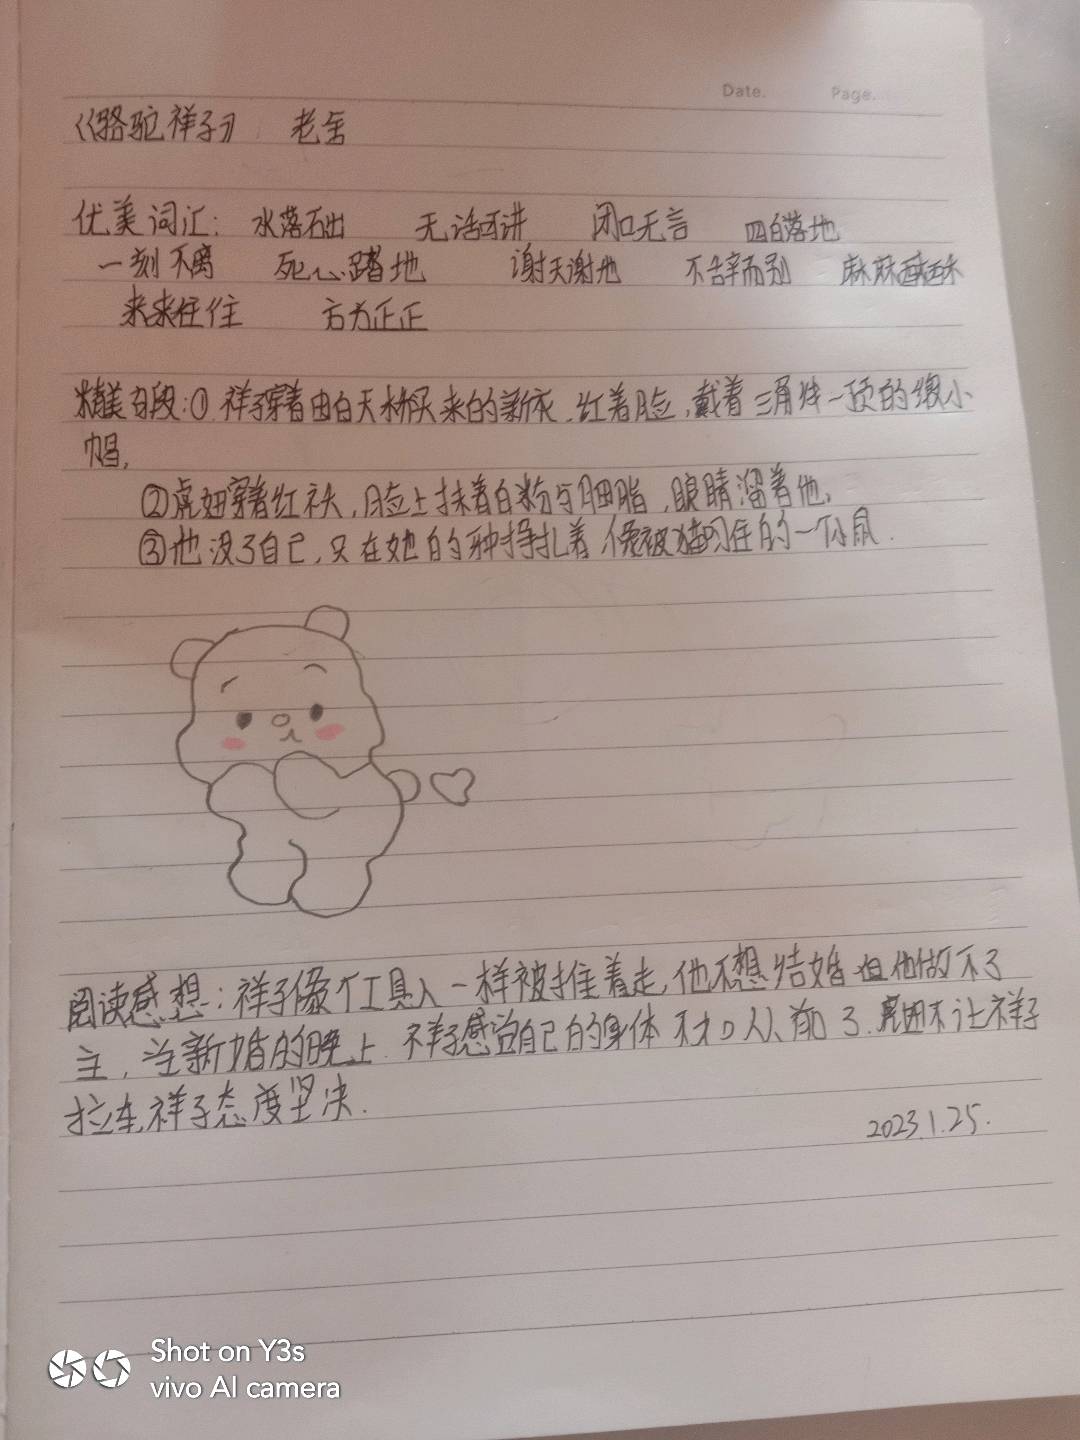 Date. Page.
《骆驼祥子》 老舍
优美词汇: 水落石出 无话可讲 闭口无言 四白落地
一刻不离 死心踏地 谢天谢地 不辞而别 麻麻酥酥
来来往往 方方正正
精美句段:① 祥子穿着由白天桥买来的新衣,红着脸,戴着三角钱一顶的缎小
帽,
②虎妞穿着红袄,脸上抹着白粉与胭脂,眼睛溜着他,
③他没了自己,只在她的牙中挣扎着 像被猫叼住的一个小鼠.
阅读感想:祥子像个工具人一样被推着走,他不想结婚但他做不了
主,当新婚的晚上.祥子感觉自己的身体不如从前了.虎妞不让祥子
拉车,祥子态度坚决.
2023.1.25.
Shot on Y3s
vivo AI camera